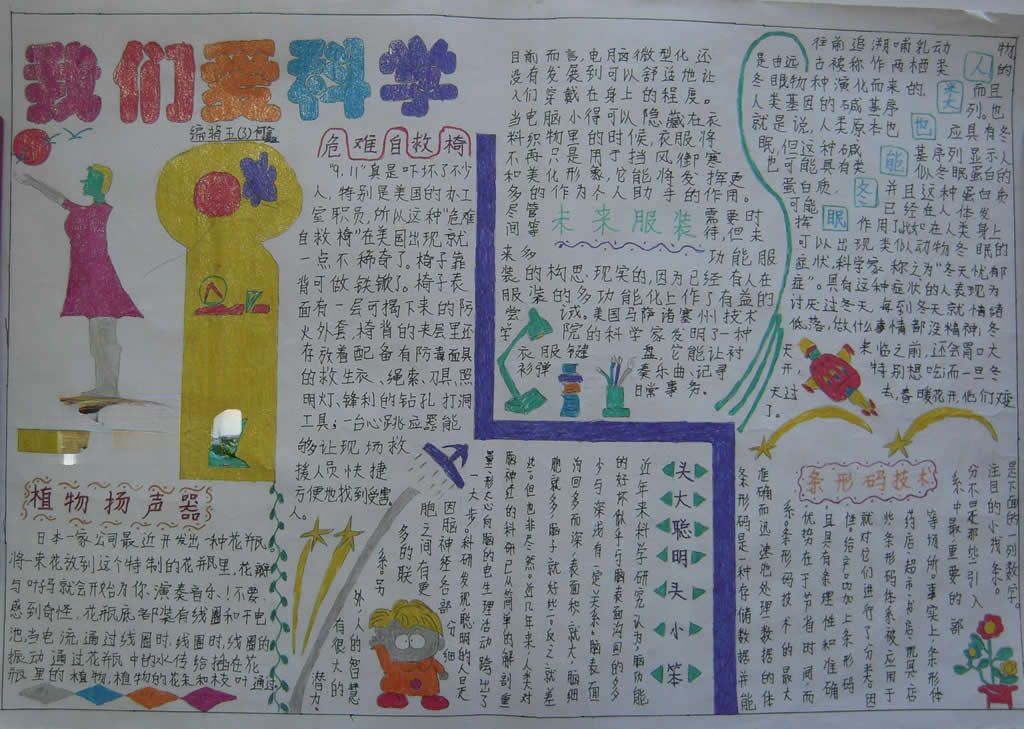 我们爱科学
危难自救椅
"9.11"真是吓坏了不少
人,特别是美国的办工
室职员,所以这种"危难
自救椅"在美国出现,就
一点不稀奇了。椅子靠
背可做铁锹了。椅子表
面有一层可揭下来的防
火外套,椅背的夹层里还
存放着配备有防毒面具
的救生衣、绳索、刀具、照
明灯、锋利的钻孔打洞
工具;一台心跳应器能
够让现场救
援人员快捷
方便地找到受害
人。
植物扬声器
日本一家公司最近开发出一种花瓶,
将一束花放到这个特制的花瓶里,花瓣
与叶吗就会开始为你演奏音乐!不要
感到奇怪,花瓶底部装有线圈和干电
池,当电流通过线圈时,线圈时,线圈的
振动通过花瓶中的水传给插在花
瓶里的植物,植物的花朵和枝叶通过
目前而言,电脑微型化还
没有发展到可以舒适地让
人们穿戴在身上的程度。
当电脑小得可以隐藏在衣
料织物里的时候,衣服将
不再只是用于挡风御寒
和美化形象,它能将发挥更
多的作为个人助手的作用。
尽管
间等
未来服装
需要时
待,但未
来多
功能服
装的构思,现实的,因为已经有人在
服装的多功能化上作了有益的
尝
试。美国马萨诸塞州技术
学
院的科学家发明了一种
衣服键
盘,它能让衬
衫弹
奏乐曲、记寻
日常事务。
往前追溯哺乳动物
是由远古被称作两栖类的
冬眼物种演化而来的,而且
人类基因的碱基序列。也
就是说,人类原本也应具有冬
眠,但这种碱基序列显示人
也可能具有类似冬眠蛋白的
蛋白质,并且这种蛋白质
可能已经在人体发
挥作用了,比如在人类身上
可以出现类似动物冬眠的
症状,科学家称之为"冬天忧郁
症"。具有这种症状的人表现为
讨厌过冬天,每到冬天就情绪
低落,做什么事情都没精神;冬
天
来临之前,还会胃口大
开,
特别想吃;而一旦冬
天过
去,春暖花开,他们又
了。
人类也能冬眠
头大聪明头小笨
近年来科学研究认为,脑功能
的好坏似乎与脑表面沟回的多
少与深浅有一定关系。脑表面
沟回多而深,表面积就大,脑细
胞就多,脑子就好些,反之就差
些。但也非尽然。近几年来,人类对
脑神经的科研已从简单的解剖重
量、形态心向脑的电生理活动跨出了
一大步。科研发现聪明的人是
因脑神经各部分细
胞之间有更
多的联
系。另
外,人的智慧
有很大的
潜力。
条形码技术
是不面的一列数字。
注目的小线条。
分不是那些引入
系中最重要的部
等场所。事实上,条形体
药店、超市、书店、玩具店
些条形码体系被应用于
就对它们进行了分类。因
伴给产品加上条形码
,且具有条理性和准确
,优势在于节省时间,而
系。条形码技术的最大
准确而迅速地处理数据的体
条形码是一种存储数据并能